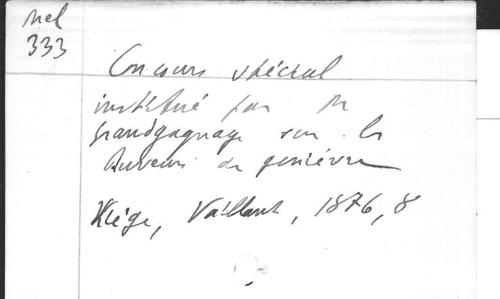 Mel
333
Concours spécial
institué par M
grandgagnage sur les
buveurs de genièvre
Liège, Vaillant, 1876, 8